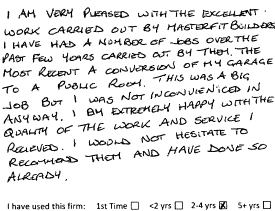 I AM VERY PLEASED WITH THE EXCELLENT
WORK CARRIED OUT BY MASTERFIT BUILDERS
I HAVE HAD A NUMBER OF JOBS OVER THE
PAST FEW YEARS CARRIED OUT BY THEM. THE
MOST RECENT A CONVERSION OF MY GARAGE
TO A PUBLIC ROOM. THIS WAS A BIG
JOB BUT I WAS NOT INCONVIENICED IN
ANYWAY. I AM EXTREMELY HAPPY WITH THE
QUALITY OF THE WORK AND SERVICE I
RECIEVED. I WOULD NOT HESITATE TO
RECOMMEND THEM AND HAVE DONE SO
ALREADY.
I have used this firm: 1st Time ☐ <2 yrs ☐ 2-4 yrs ☒ 5+ yrs ☐